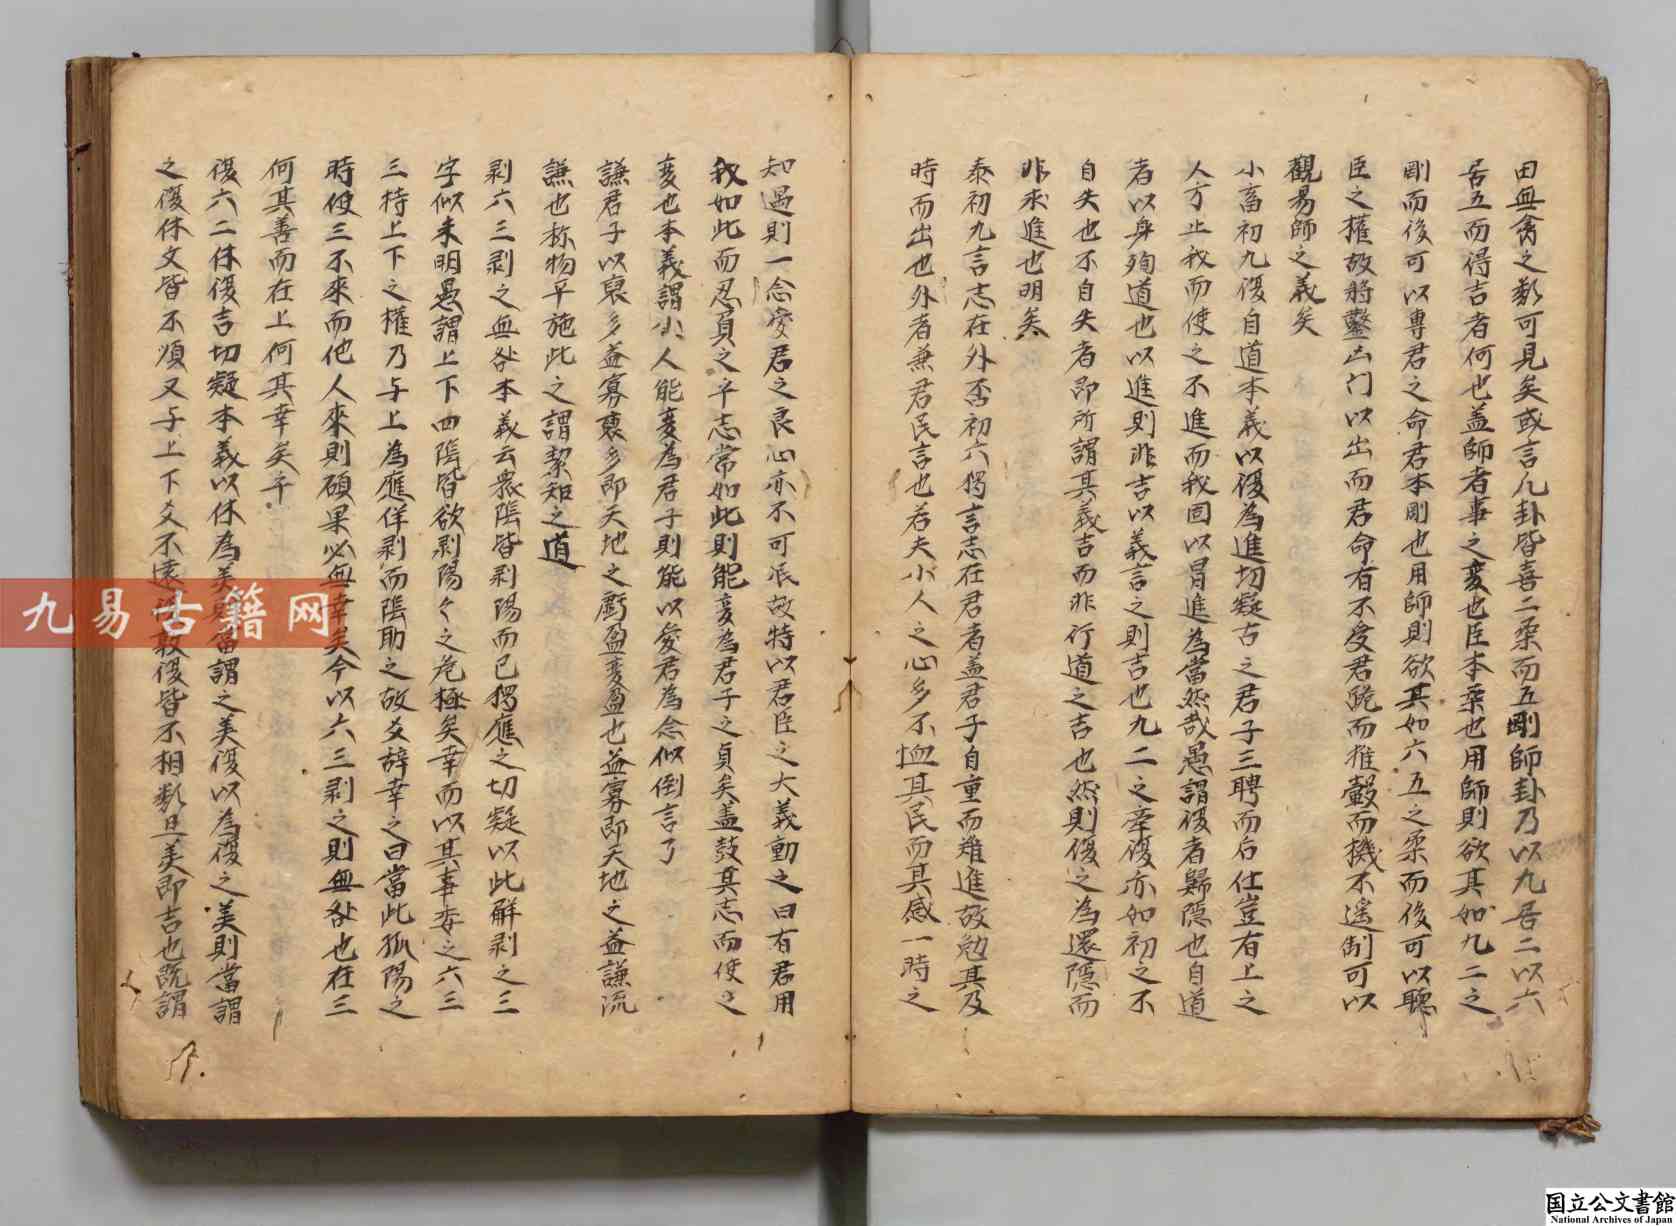 田無禽之類可見矣或言凡卦皆喜二柔而五剛師卦乃以九居二以六
居五而得吉者何也盖師者事之変也臣本柔也用師則欲其如九二之
剛而後可以專君之命君本剛也用師則欲其如六五之柔而後可以聽
臣之權故將鑿凶门以出而君命有不受君跪而推轂而機不遙制可以
觀易師之義矣
小畜初九復自道本義以復為進切疑古之君子三聘而后仕豈有上之
人方止我而使之不進而我固以冒進為當然哉愚謂復者歸隱也自道
者以身殉道也以進則非吉以義言之則吉也九二之牽復亦如初之不
自失也不自失者即所謂其義吉而非行道之吉也然則復之為還隱而
非求進也明矣
泰初九言志在外否初六獨言志在君者盖君子自重而難進故勉其及
時而出也外者兼君民言也若夫小人之心多不恤其民而其感一時之
知遇則一念愛君之良心亦不可泯故特以君臣之大義動之曰有君用
我如此而忍負之乎志常如此則能変為君子之貞矣盖鼓其志而使之
変也本義謂小人能変為君子則能以愛君為念似倒言了
謙君子以裒多益寡裒多即天地之虧盈変盈也益寡即天地之益謙流
謙也称物平施此之謂絜矩之道
剥六三剥之無咎本義云衆陰皆剥陽而已獨應之切疑以此解剥之三
字似未明愚謂上下四陰皆欲剥陽々之危極矣幸而以其事委之六三
三持上下之權乃与上為應佯剥而陰助之故爻辞幸之曰當此孤陽之
時使三不來而他人來則碩果必無幸矣今以六三剥之則無咎也在三
何其善而在上何其幸矣乎
復六二休復吉切疑本義以休為美當謂之美復以為復之美則當謂
之復休文皆不順又与上下爻不遠復敦復皆不相類且美即吉也既謂
九易古籍网
国立公文書館
National Archives of Japan